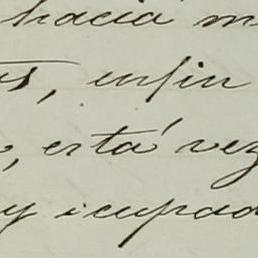 hacia m
s, enfin
, está vez
y icupad